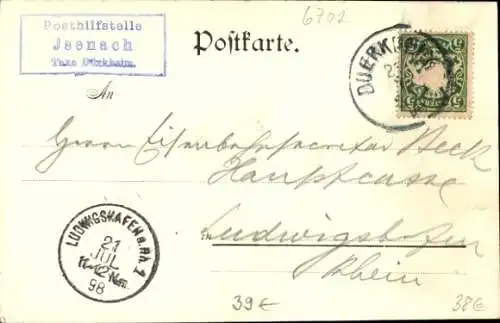 6702
Posthilfstelle
Jsenach
Taxe Dürkheim.
Postkarte.
DUERKHEIM
An
Herrn Eisenbahnsecretär Beck
Hauptcasse
Ludwigshafen
Rhein
LUDWIGSHAFEN a. Rh. 1
21
JUL
11-12 Nm.
98
39€
38€